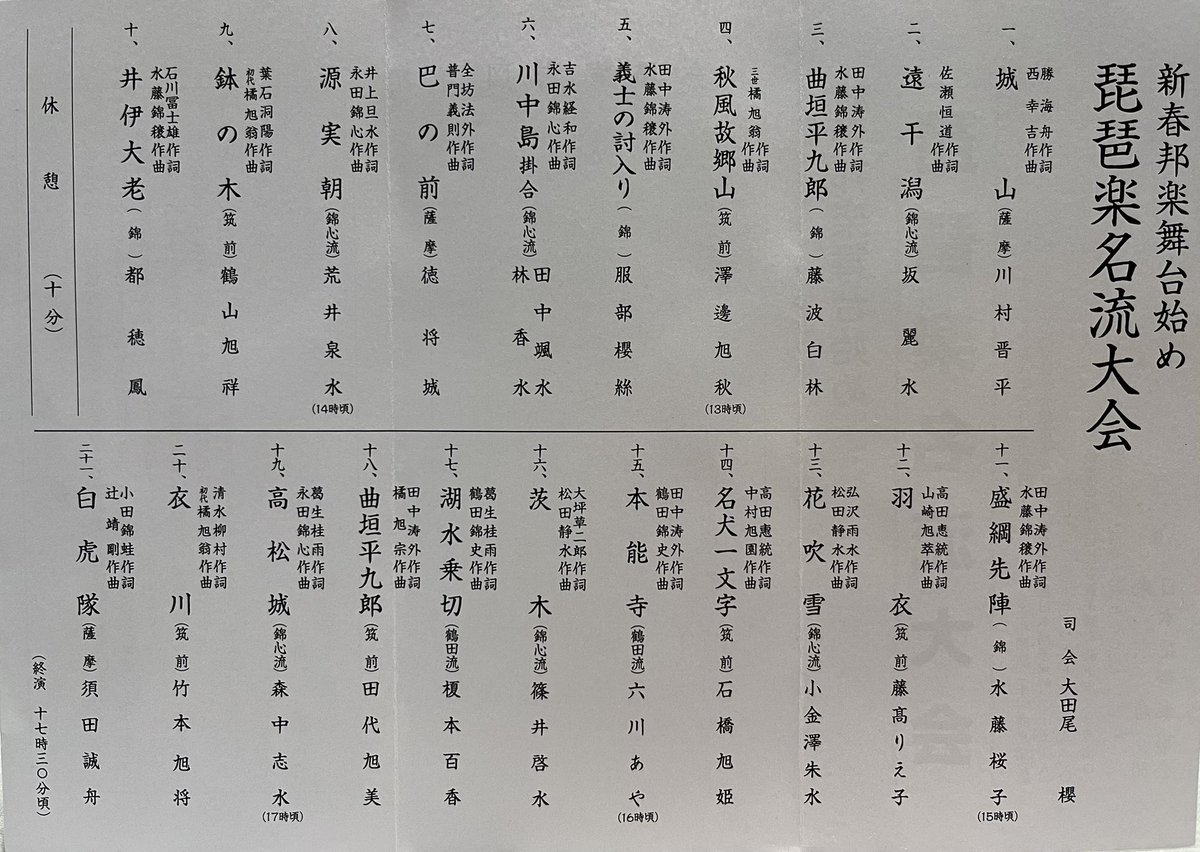 新春邦楽舞台始め
琵琶楽名流大会
一、城山(薩摩)川村晋平
勝海舟作詞
西幸吉作曲
二、遠干潟(錦心流)坂麗水
佐瀬恒道作詞
作曲
三、曲垣平九郎(錦)藤波白林
田中涛外作詞
水藤錦穰作曲
四、秋風故郷山(筑前)澤邊旭秋
三世橘旭翁作詞
作曲
(13時頃)
五、義士の討入り(錦)服部櫻絲
田中涛外作詞
水藤錦穰作曲
六、川中島掛合(錦心流)田中颯水
林香水
吉水経和作詞
永田錦心作曲
七、巴の前(薩摩)徳将城
全坊法外作詞
普門義則作曲
八、源実朝(錦心流)荒井泉水
井上旦水作詞
永田錦心作曲
(14時頃)
九、鉢の木(筑前)鶴山旭祥
葉石洞陽作詞
初代橘旭翁作曲
十、井伊大老(錦)都穂鳳
石川冨士雄作詞
水藤錦穰作曲
休憩(十分)
司会 大田尾櫻
十一、盛綱先陣(錦)水藤桜子
田中涛外作詞
水藤錦穰作曲
(15時頃)
十二、羽衣(筑前)藤髙りえ子
高田恵統作詞
山崎旭萃作曲
十三、花吹雪(錦心流)小金澤朱水
弘沢雨水作詞
松田静水作曲
十四、名犬一文字(筑前)石橋旭姫
高田恵統作詞
中村旭園作曲
十五、本能寺(鶴田流)六川あや
田中涛外作詞
鶴田錦史作曲
(16時頃)
十六、茨木(錦心流)篠井啓水
大坪草二郎作詞
松田静水作曲
十七、湖水乗切(鶴田流)榎本百香
葛生桂雨作詞
鶴田錦史作曲
十八、曲垣平九郎(筑前)田代旭美
田中涛外作詞
橘旭宗作曲
十九、高松城(錦心流)森中志水
葛生桂雨作詞
永田錦心作曲
(17時頃)
二十、衣川(筑前)竹本旭将
清水柳村作詞
初代橘旭翁作曲
二十一、白虎隊(薩摩)須田誠舟
小田錦蛙作詞
辻靖剛作曲
(終演 十七時三〇分頃)